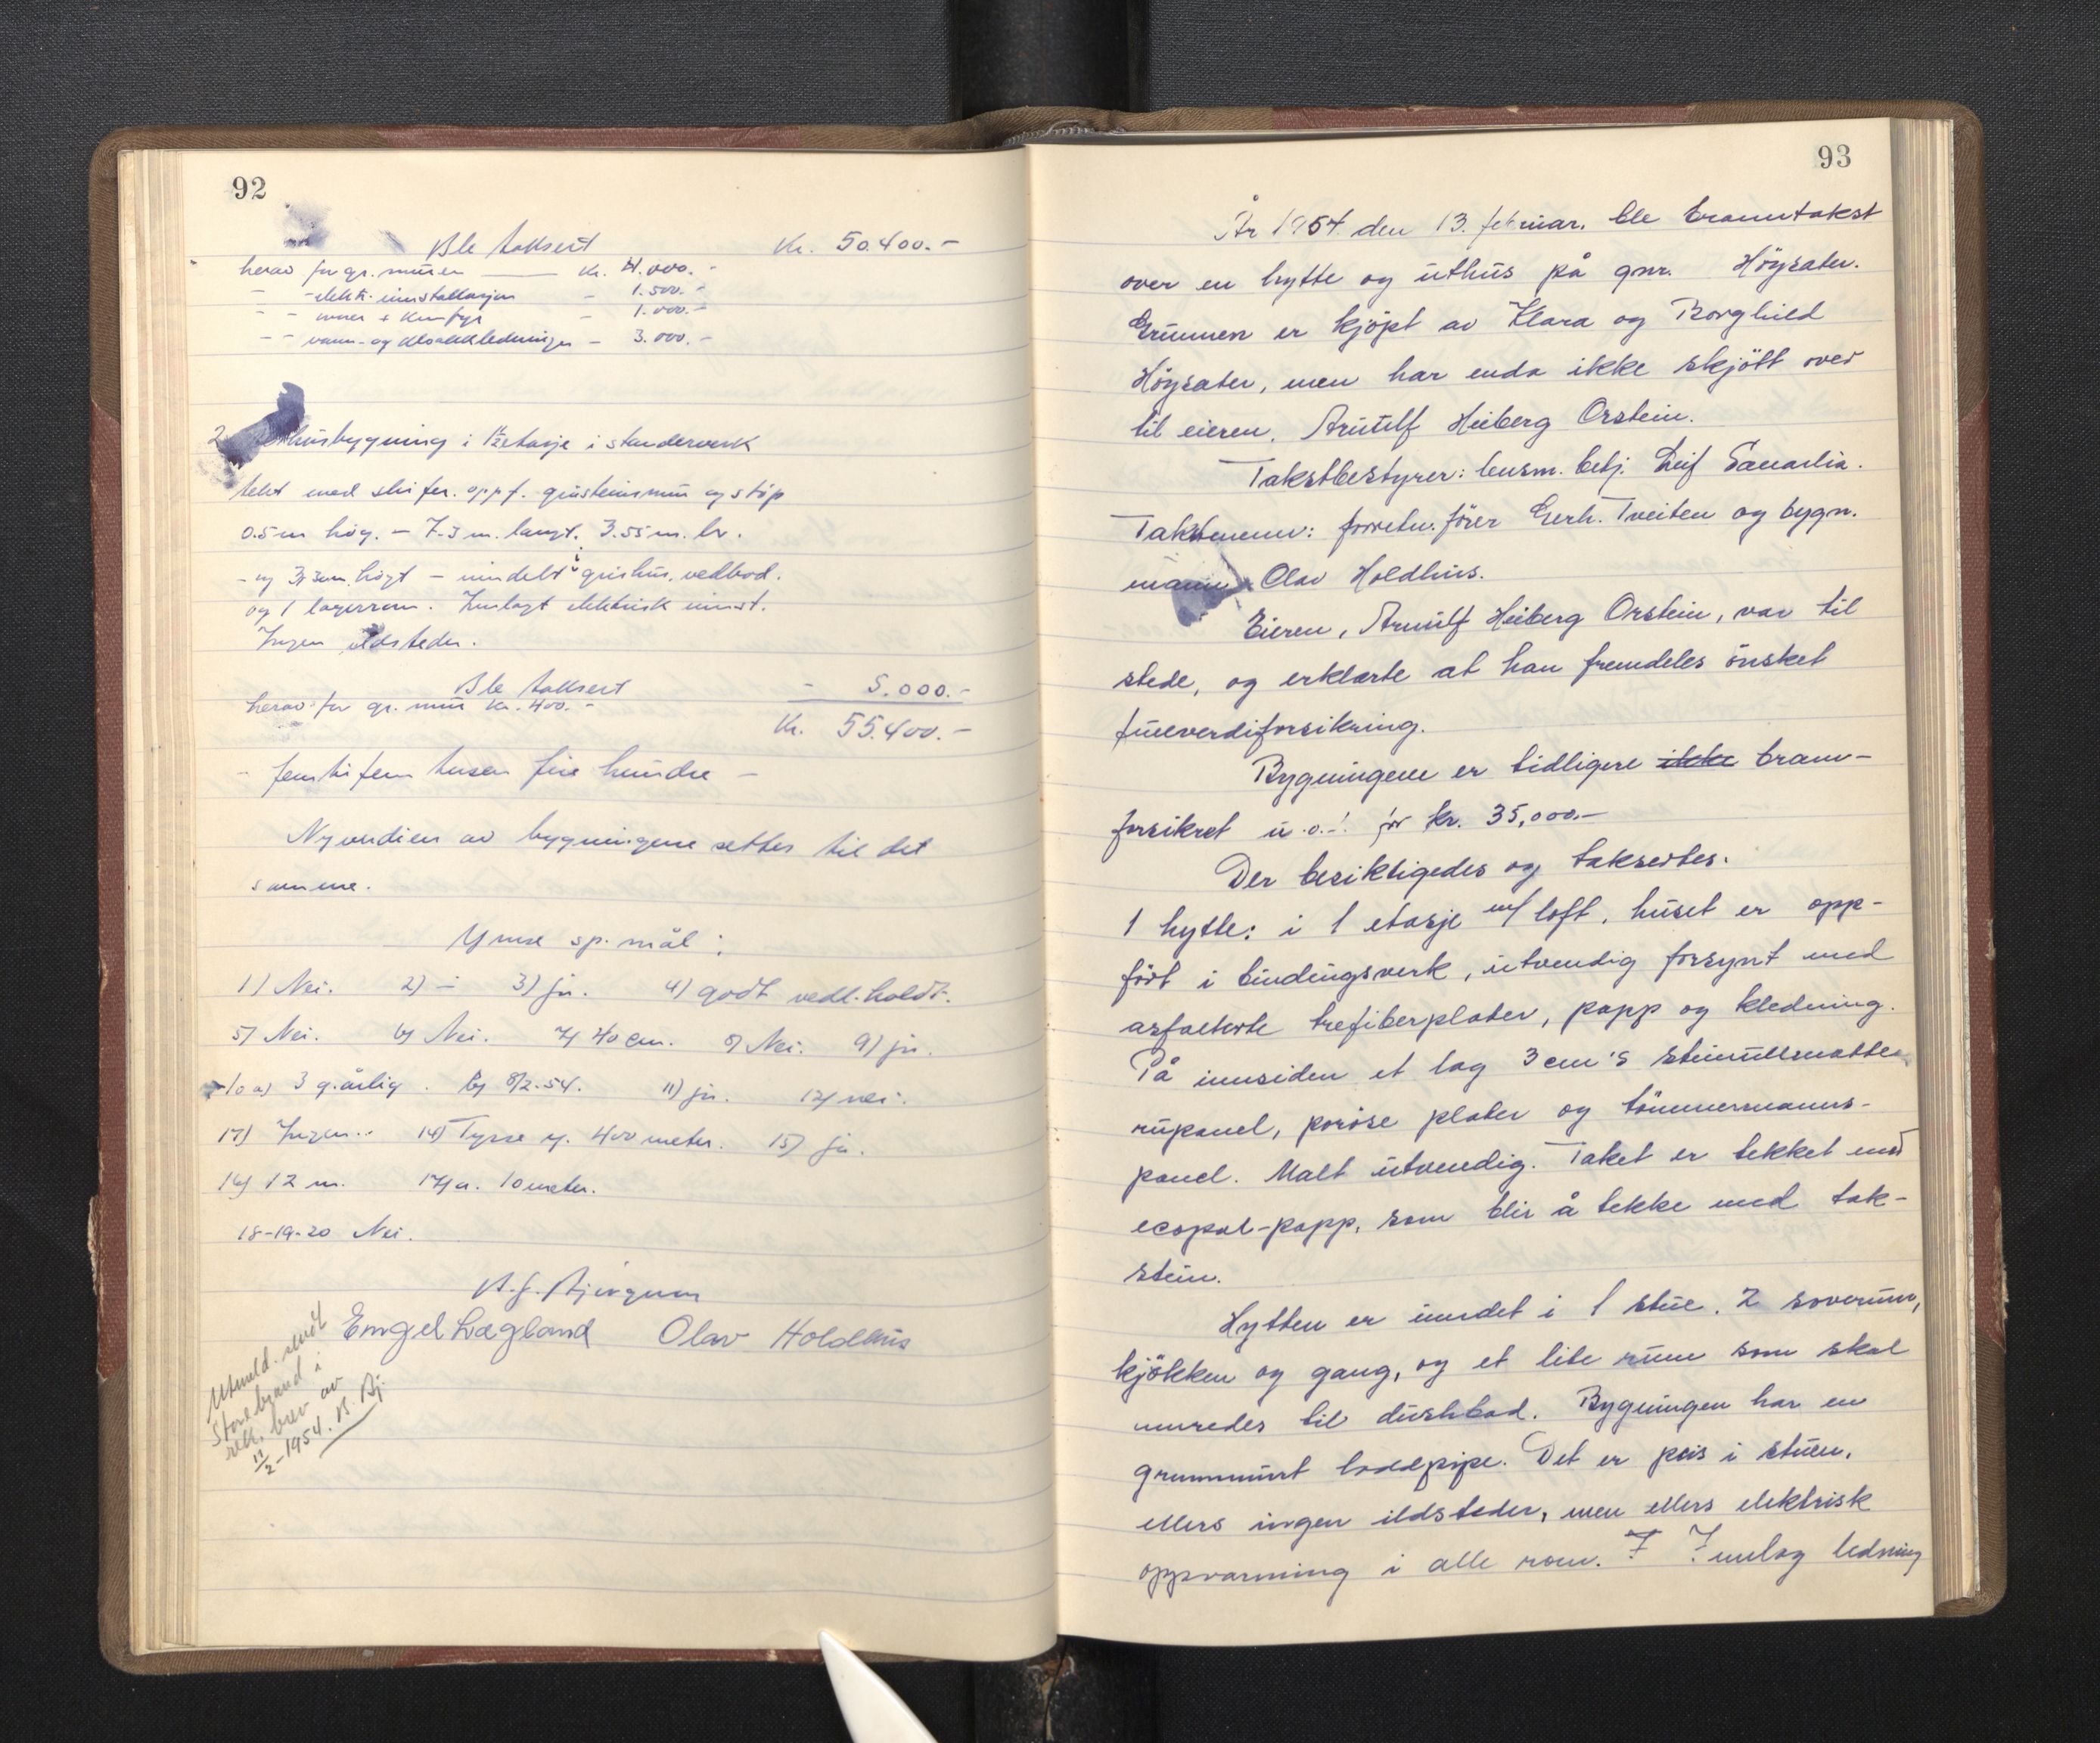 92
Ble taksert Kr. 50.400.-
herav for gr. muren kr. 4.000.-
- - elektr. innstallasjon - 1.500.-
- - ovner + komfyr - 1.000.-
- - vann- og kloakkledninger - 3.000.-
2. uthusbygning i 1½ etasje i standerverk
tekt med skifer. oppf. gråsteinsmur og støp
0.5 m høg. - 7.3 m. langt. 3.55 m. br.
- og høgt - inndelt i grishus, vedbod.
og 1 lagerrom. Innlagt elektrisk innst.
Ingen ildsteder.
Ble taksert - 5.000.-
herav for gr. mur kr. 400.-
Kr. 55.400.-
- femti fem tusen fire hundre -
Nyverdien av bygningene settes til det
samme.
Ymse sp. mål:
1) Nei. 2) - 3) ja. 4) godt vedl.holdt.
5) Nei. 6) Nei. 7) 40 cm. 8) Nei. 9) ja.
10 a) 3 g. årlig. b) 8/2-54. 11) ja. 12) nei.
13) Ingen.. 14) Tysse y. 400 meter. 15) ja.
16) 12 m. 17) a. 10 meter.
18-19-20 Nei.
Engel Lægland Olav Holdhus
Utmeld. sendt
Storebrand i
rek. brev av
11/2-1954. B. Bj.
93
År 1954 den 13. februar. ble branntakst
over en hytte og uthus på gnr. Høysæter.
Grunnen er kjöpt av Klara og Borghild
Höysæter, men har enda ikke skjött over
til eieren, Arnulf Heiberg Orstein.
Takstbestyrer: lensm. betj. Leif
Takstmenn: forretn. förer Gerh. Tveiten og bygn.
mann Olav Holdhus.
Eieren, Arnulf Heiberg Orstein, var til
stede, og erklærte at han fremdeles önsket
fullverdiforsikring.
Bygningene er tidligere ikke brann-
forsikret u.o.! for kr. 35,000.-
Der besiktigedes og taksertes.
1 hytte: i 1 etasje m/ loft, huset er opp-
fört i bindingsverk, utvendig forsynt med
asfalterte trefiberplater, papp og kledning.
På innsiden et lag 3 cm's steinullsmatter
rupanel, poröse plater og tömmermanns-
panel. Malt utvendig. Taket er tekket med
ecopal-papp, som blir å tekke med tak-
stein.
Hytten er inndet i 1 stue, 2 soverum,
kjökken og gang, og et lite rum som skal
innredes til dushbad. Bygningen har en
grunnmurt loddpipe. Det er peis i stuen,
ellers ingen ildsteder, men ellers elektrisk
oppvarming i alle rom. I Innlag ledning